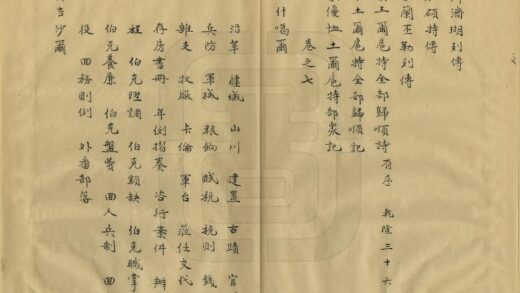 濟瑚列傳
碩特傳
蘭丕勒列傳
土爾扈特全部歸順詩 有序 乾隆三十六
土爾扈特全部歸順記
優恤土爾扈特部衆記
卷之七
什噶爾
沿革 疆域 山川 建置 古蹟 官
兵防 軍械 粮餉 賦税 税則 錢
雜支 牧廠 卡倫 軍台 蒞任文代
存房書冊 年例摺奏 咨行案件 辦
程 伯克陞調 伯克額缺 伯克職掌
伯克養廉 伯克盤費 回人兵制 回
役 回務則例 外番部落
吉沙爾